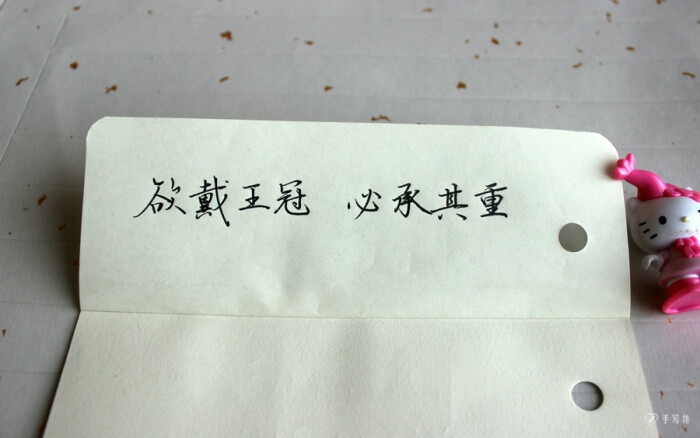 欲戴王冠 必承其重
手写坊